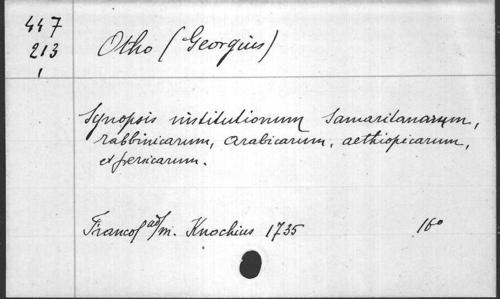 447
213
1
Otho (Georgius)
Synopsis institutionum Samaritanarum,
rabbinicarum, arabicarum, aethiopicarum,
et persicarum.
Francof ad/m. Knochius 1735 16°